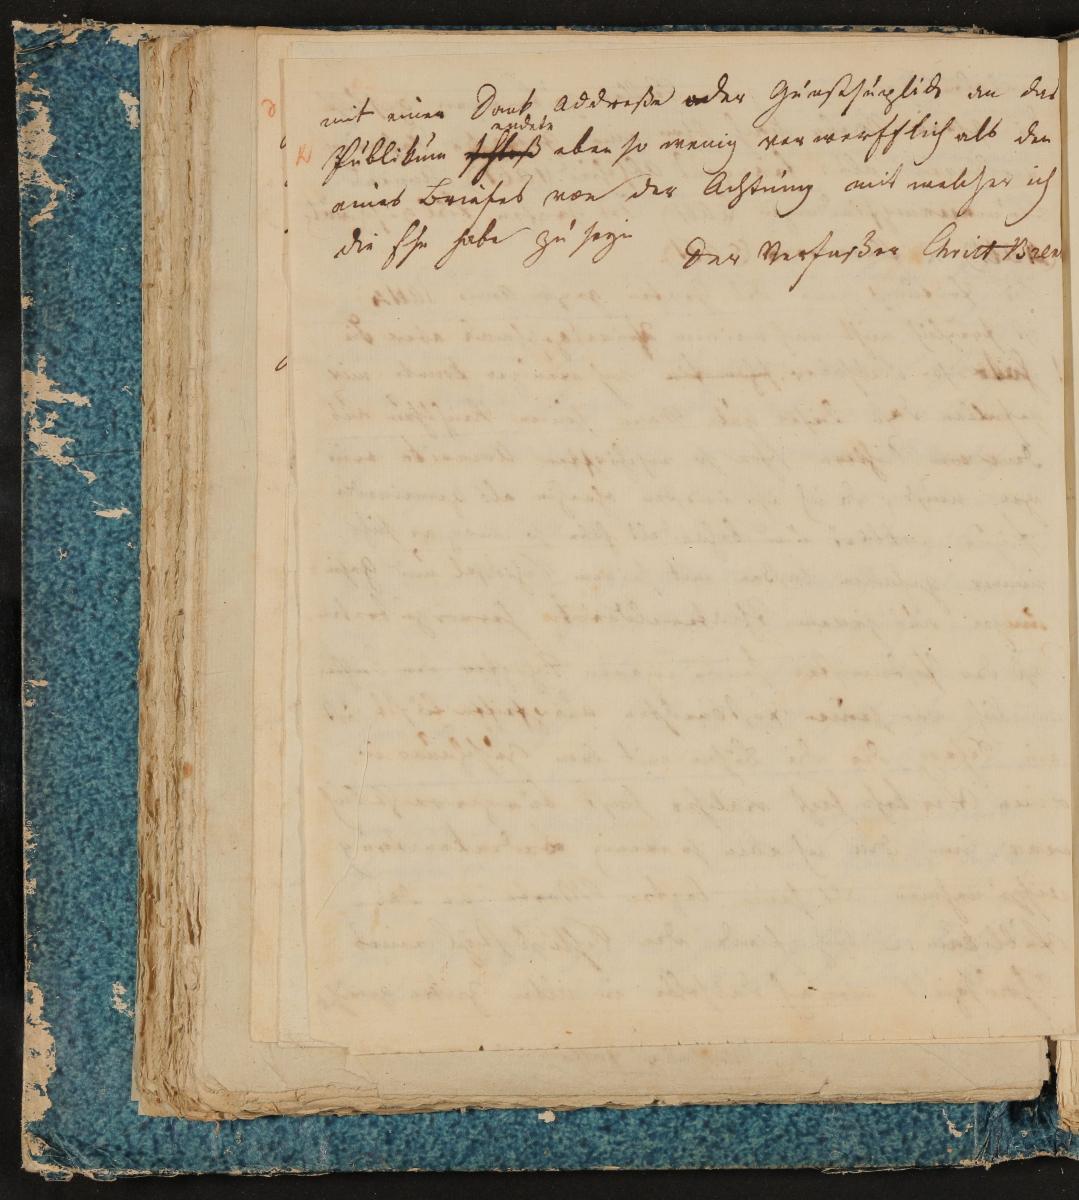 mit einer Dank Addreße oder Gunstsuplick an das
endete
Publikum schloß eben so wenig verwerfflich als den
eines Briefes von der Achtung mit welcher ich
die Ehre habe zu seyn
Der Verfaßer Christ Bren